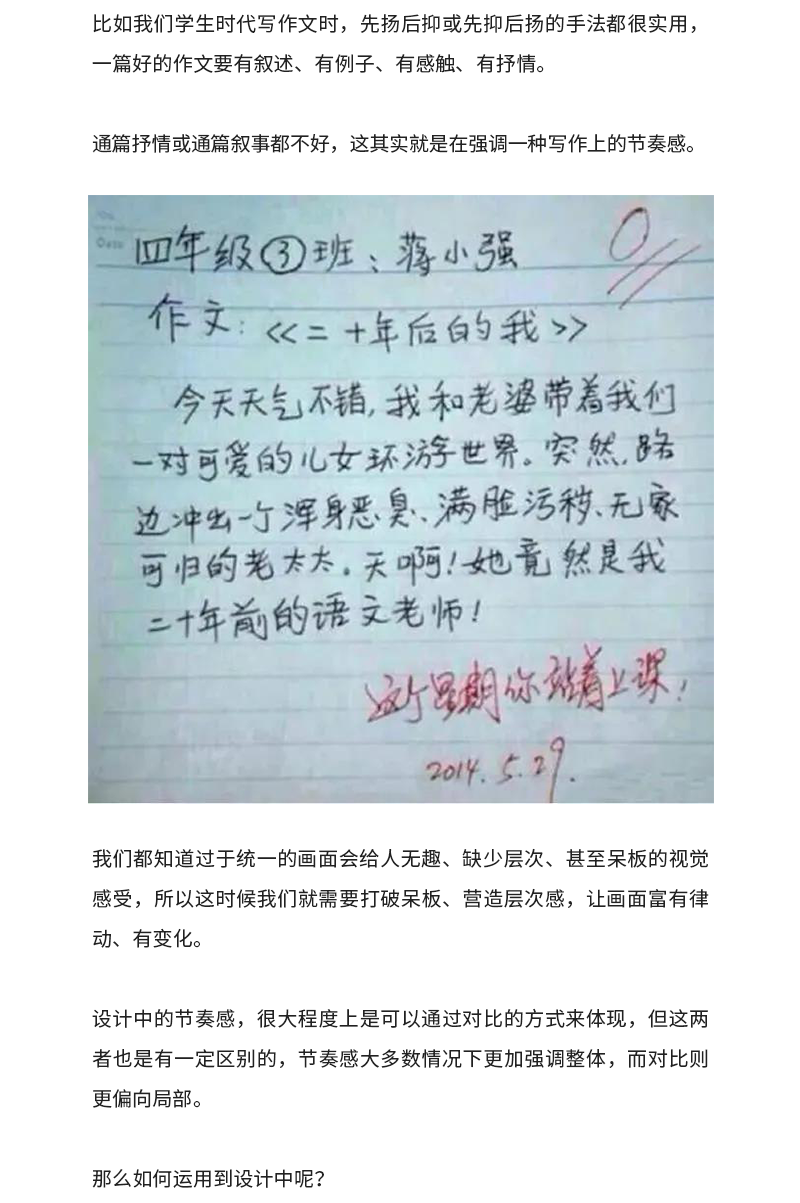 比如我们学生时代写作文时，先扬后抑或先抑后扬的手法都很实用，
一篇好的作文要有叙述、有例子、有感触、有抒情。
通篇抒情或通篇叙事都不好，这其实就是在强调一种写作上的节奏感。
Date
四年级③班：蒋小强
0
作文：<<二十年后的我>>
今天天气不错，我和老婆带着我们
一对可爱的儿女环游世界。突然，路
边冲出一个浑身恶臭、满脸污秽、无家
可归的老太太。天啊！她竟然是我
二十年前的语文老师！
这个星期你站着上课！
2014.5.29.
我们都知道过于统一的画面会给人无趣、缺少层次、甚至呆板的视觉
感受，所以这时候我们就需要打破呆板、营造层次感，让画面富有律
动、有变化。
设计中的节奏感，很大程度上是可以通过对比的方式来体现，但这两
者也是有一定区别的，节奏感大多数情况下更加强调整体，而对比则
更偏向局部。
那么如何运用到设计中呢？